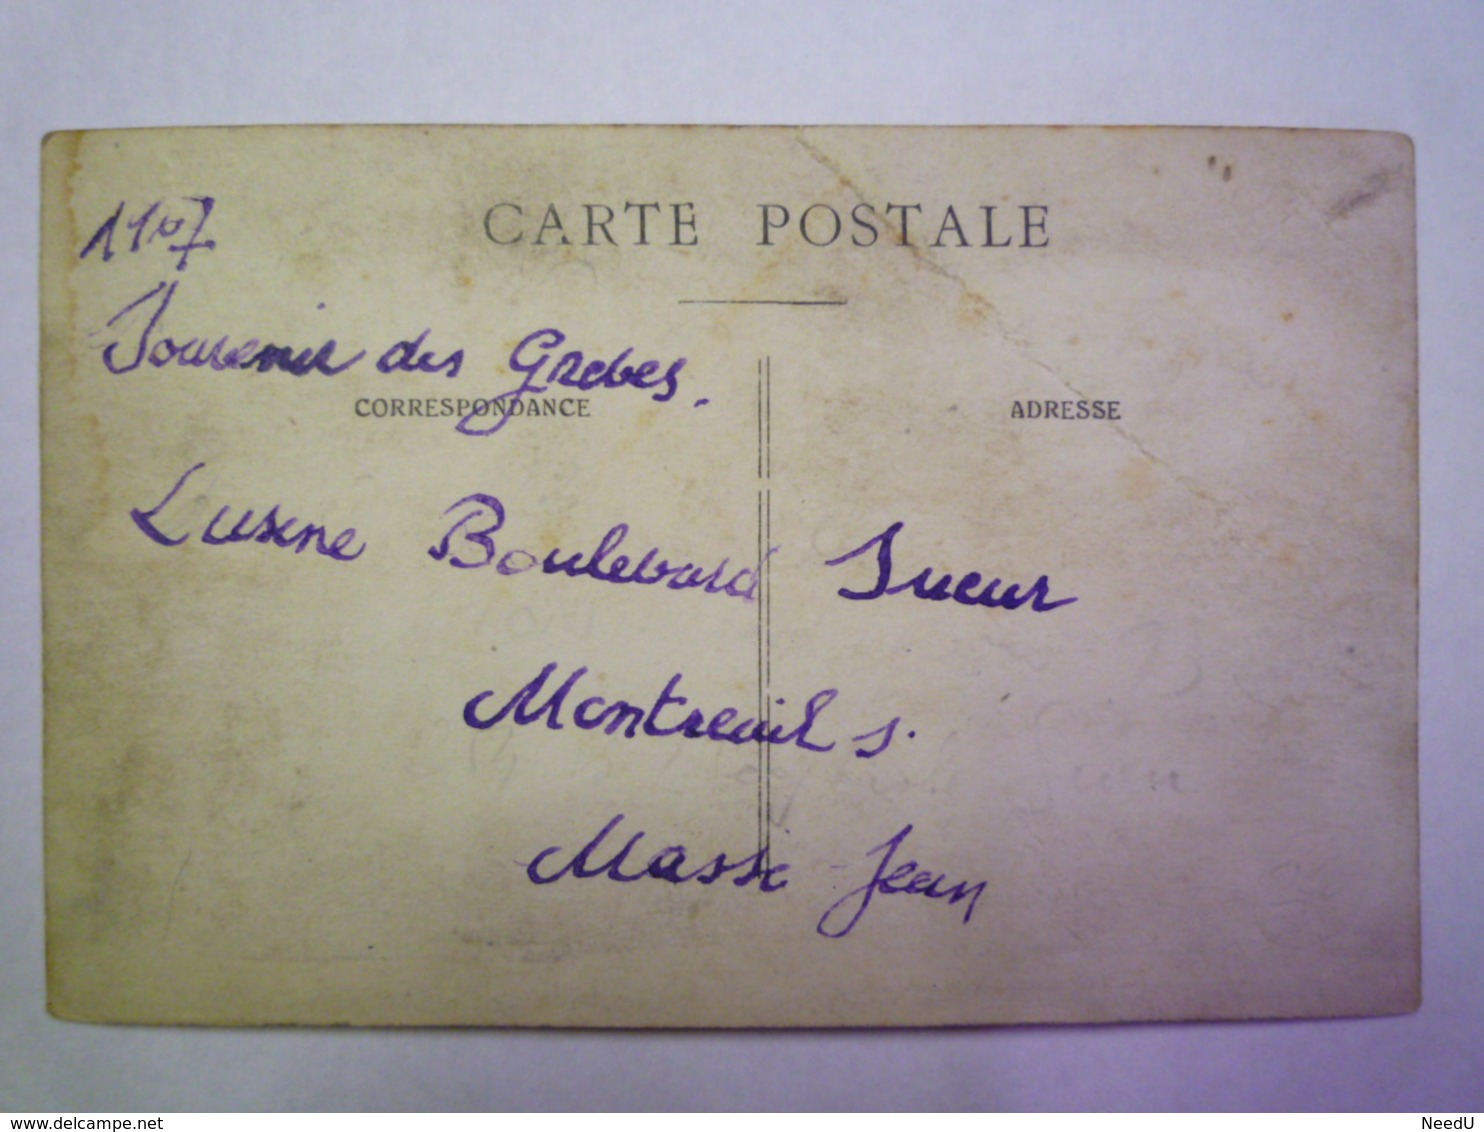 1907
CARTE POSTALE
Souvenir des Grebes.
CORRESPONDANCE
ADRESSE
Lusene Boulevard Sueur
Montreuil s.
Masse Jean
www.delcampe.net
NeedU